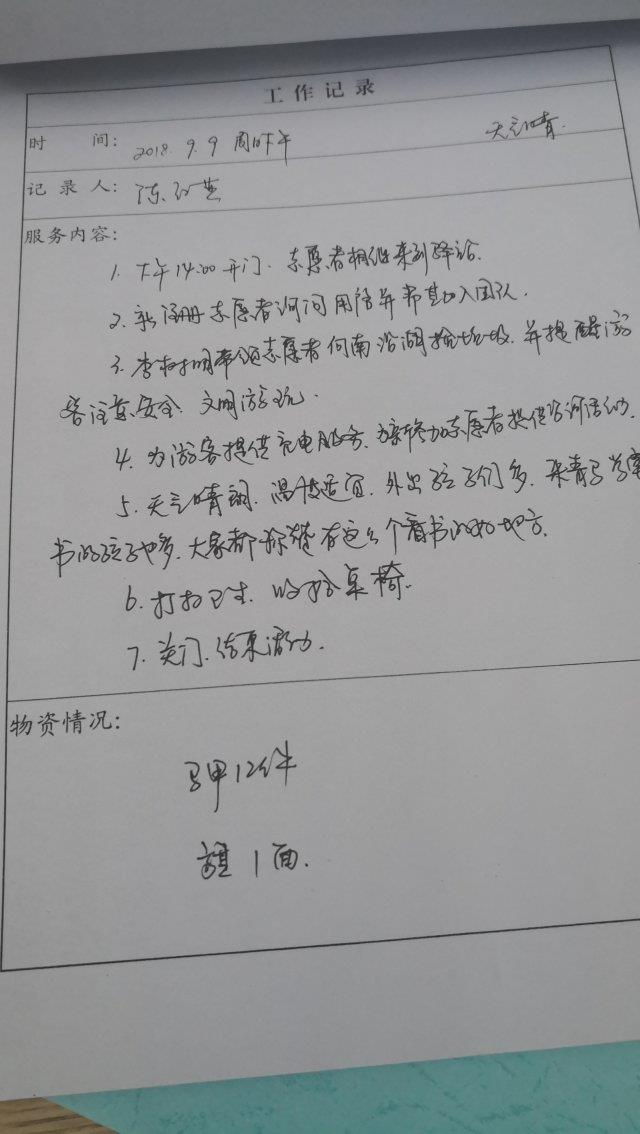 工作记录
时 间: 2018.9.9 周日下午 天气晴.
记录人: 陈红英
服务内容:
1. 下午14:00开门. 志愿者相继来到驿站.
2. 新注册志愿者询问用语并帮其加入团队.
3. 李树明带领志愿者向南沿湖捡垃圾, 并提醒游
客注意安全 文明游玩.
4. 为游客提供充电服务. 为新参加志愿者提供培训活动.
5. 天气晴朗. 温度适宜. 外出孩子们多. 来青马
书的孩子也多. 大家都称赞有这么个看书的好地方.
6. 打扫卫生. 收拾桌椅.
7. 关门. 结束活动.
物资情况:
马甲12件
旗1面.